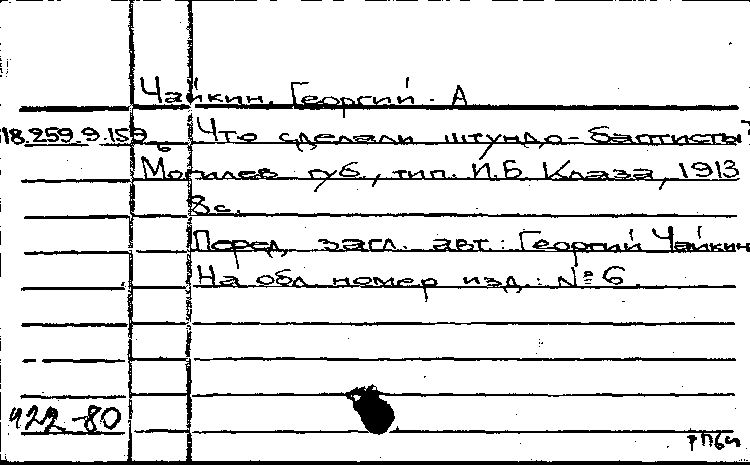 Чайкин, Георгий. А
18.259.9.159 Что сделали штундо-баптисты?
6
Могилев губ., тип. И.Б. Клаза, 1913
8с.
Перед загл. авт.: Георгий Чайкин
На обл. номер изд.: №6.
422-80